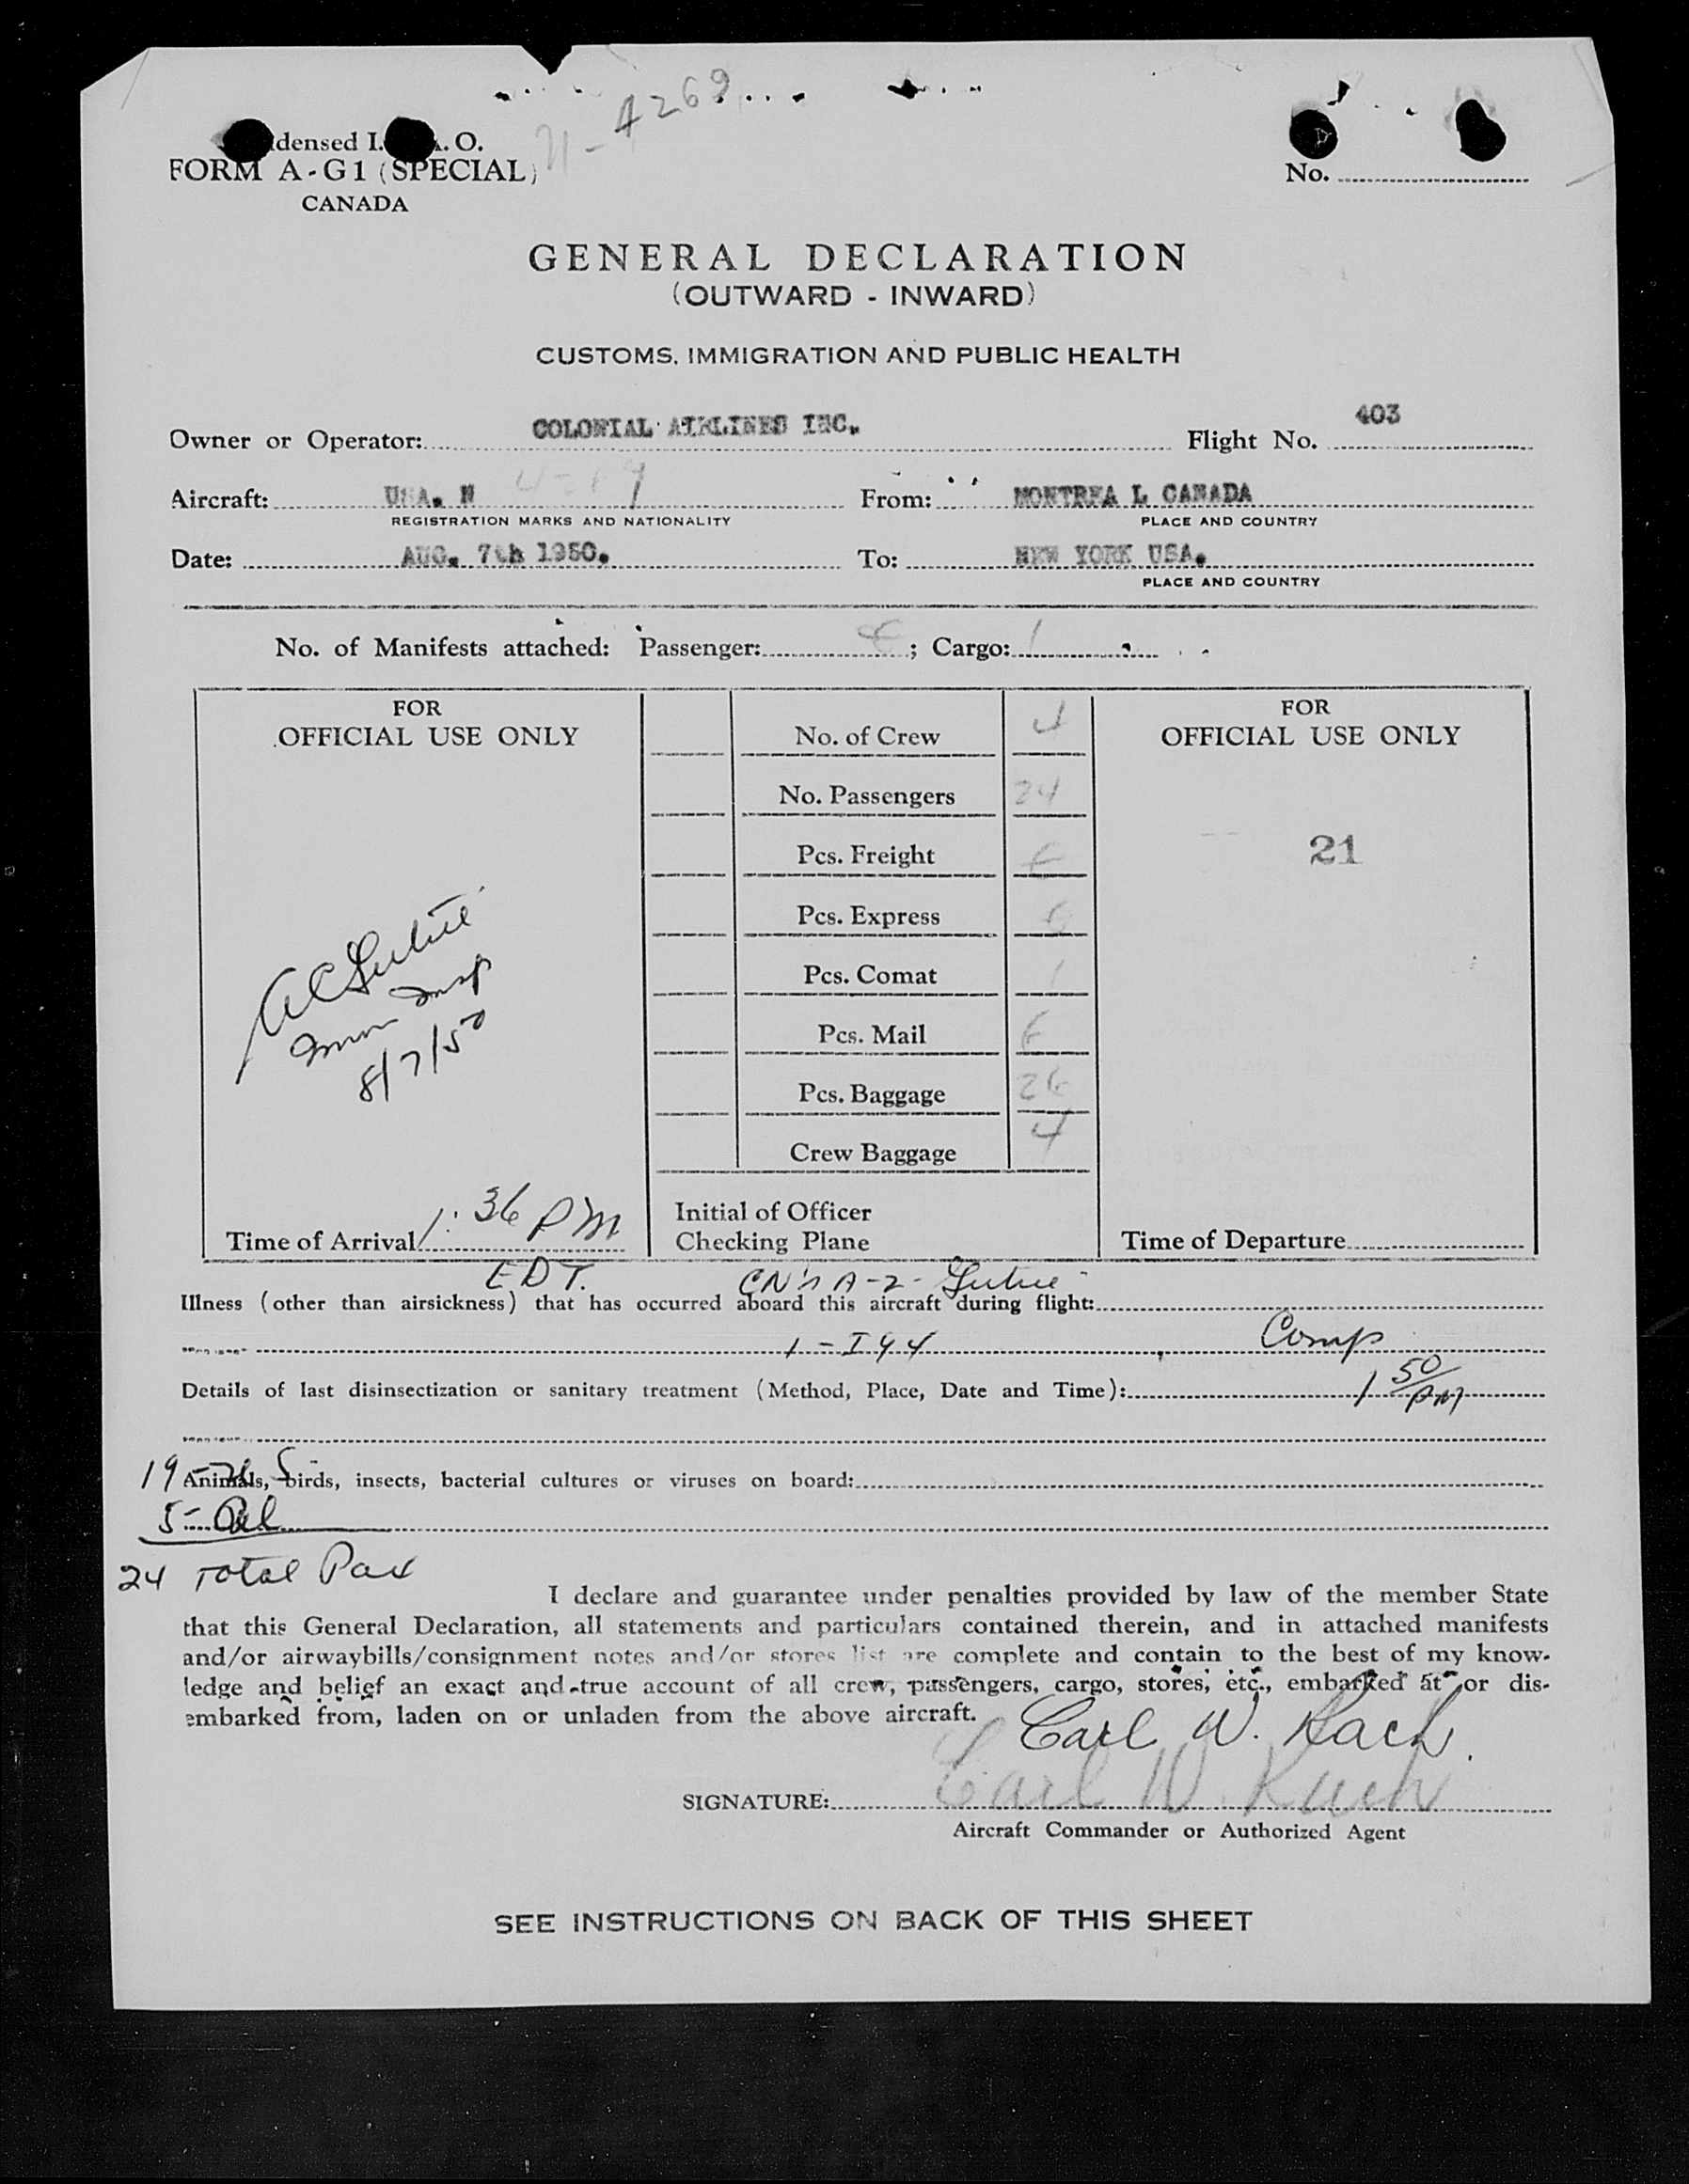 4269
densed I. A. O.
FORM A-G1 (SPECIAL)
CANADA
No.
GENERAL DECLARATION
(OUTWARD - INWARD)
CUSTOMS, IMMIGRATION AND PUBLIC HEALTH
Owner or Operator: COLONIAL AIRLINES INC. Flight No. 403
Aircraft: USA. N From: MONTREA L CANADA
REGISTRATION MARKS AND NATIONALITY PLACE AND COUNTRY
Date: AUG. 7th 1950. To: NEW YORK USA.
PLACE AND COUNTRY
No. of Manifests attached: Passenger: ; Cargo: 1
FOR
OFFICIAL USE ONLY
8/7/50
Time of Arrival 1:36 PM
EDT.
No. of Crew 4
No. Passengers 24
Pcs. Freight
Pcs. Express
Pcs. Comat 1
Pcs. Mail
Pcs. Baggage 26
Crew Baggage 4
Initial of Officer
Checking Plane
FOR
OFFICIAL USE ONLY
21
Time of Departure
Illness (other than airsickness) that has occurred aboard this aircraft during flight:
1 - I 44 Comp
Details of last disinsectization or sanitary treatment (Method, Place, Date and Time): 1 50 PM
19
Animals, birds, insects, bacterial cultures or viruses on board:
5 - Al
24 Total Pax
I declare and guarantee under penalties provided by law of the member State
that this General Declaration, all statements and particulars contained therein, and in attached manifests
and/or airwaybills/consignment notes and/or stores list are complete and contain to the best of my know-
ledge and belief an exact and true account of all crew, passengers, cargo, stores, etc., embarked at or dis-
embarked from, laden on or unladen from the above aircraft.
Carl W.
SIGNATURE: Carl W.
Aircraft Commander or Authorized Agent
SEE INSTRUCTIONS ON BACK OF THIS SHEET